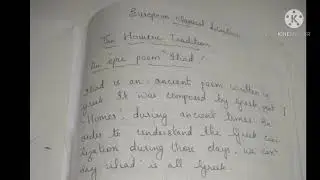 European Classical Literature
The Homeric Tradition
An epic poem "Iliad"
Iliad is an ancient poem written in
greek. It was composed by Greek poet
'Homer', during ancient times. In
order to understand the Greek civi-
lization during those days, we can
say iliad is all Greek.
KINEMASTER